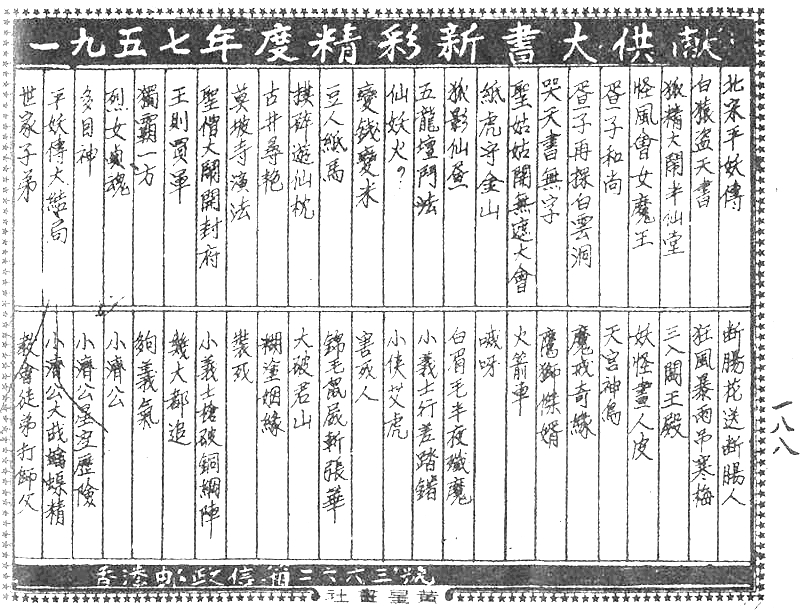 一九五七年度精彩新書大供献
北宋平妖傳
白猿盗天書
狐精大鬧半仙堂
怪風會女魔王
蛋子和尚
蛋子再探白雲洞
哭天書無字
聖姑姑開無遮大會
紙虎守金山
狐影仙蹤
五龍壇鬥法
仙妖火？
變錢變米
豆人紙馬
撲碎遊仙枕
古井尋艷
莫坡寺演法
聖僧大鬧開封府
王則買軍
獨霸一方
烈女貞魂
多目神
平妖傳大結局
世家子弟
断腸花送断腸人
狂風暴雨吊寒梅
三入閻王殿
妖怪畫人皮
天宮神鳥
魔戒奇緣
鷹獅傑婿
火箭車
喊呀
白眉毛半夜殲魔
小義士行差踏錯
小侠艾虎
害死人
錦毛鼠屍斬張華
大破君山
糊塗姻緣
裝死
小義士搶破銅網陣
幾大都追
夠義氣
小濟公
小濟公星空歷險
小濟公大战蟾蜍精
教會徒弟打師父
一八八
香港郵政信箱二六六三號
黄星畫社